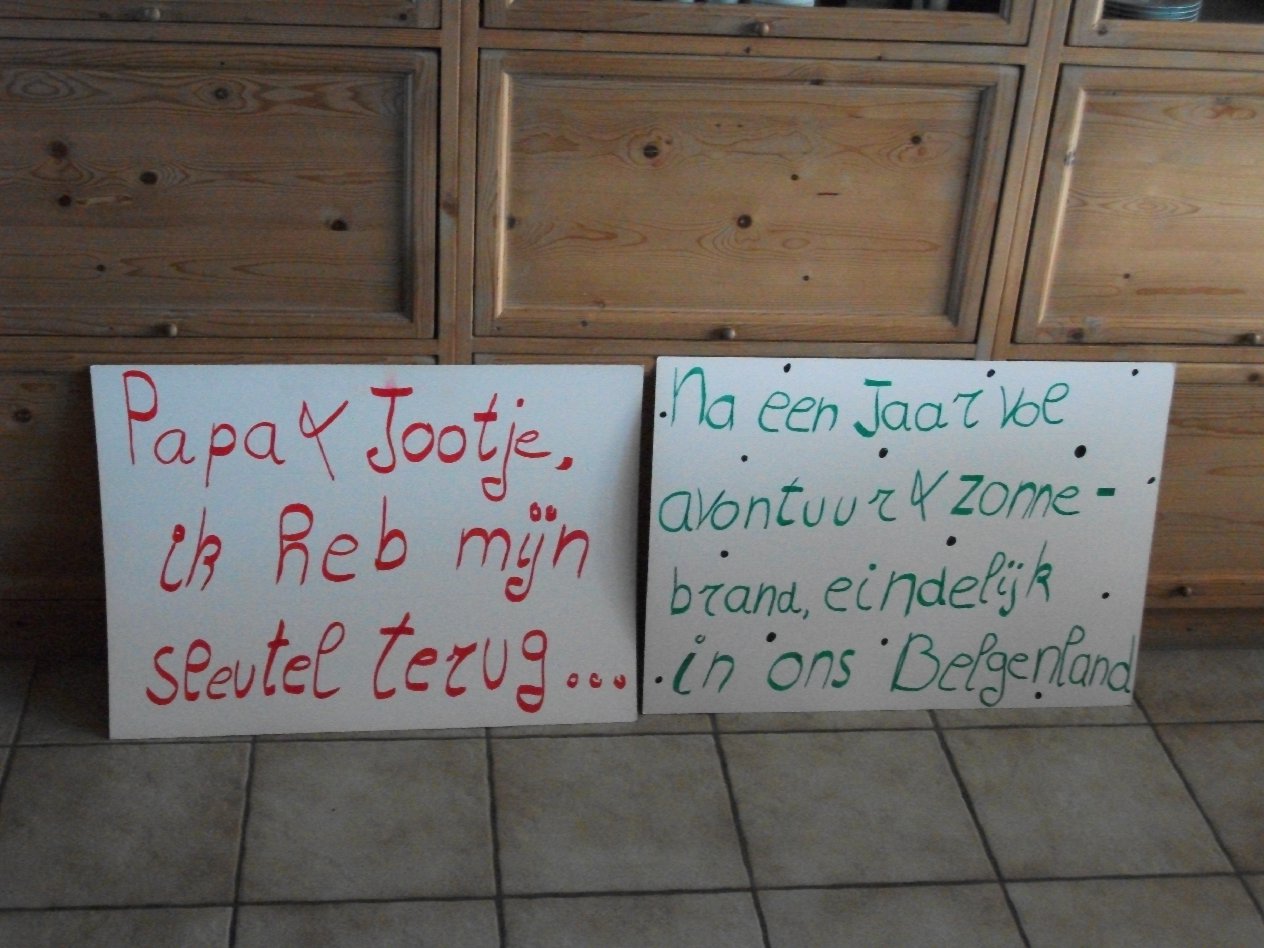 Papa & Jootje,
ik heb mijn
sleutel terug...
Na een Jaar vol
avontuur & zonne-
brand, eindelijk
in ons Belgenland